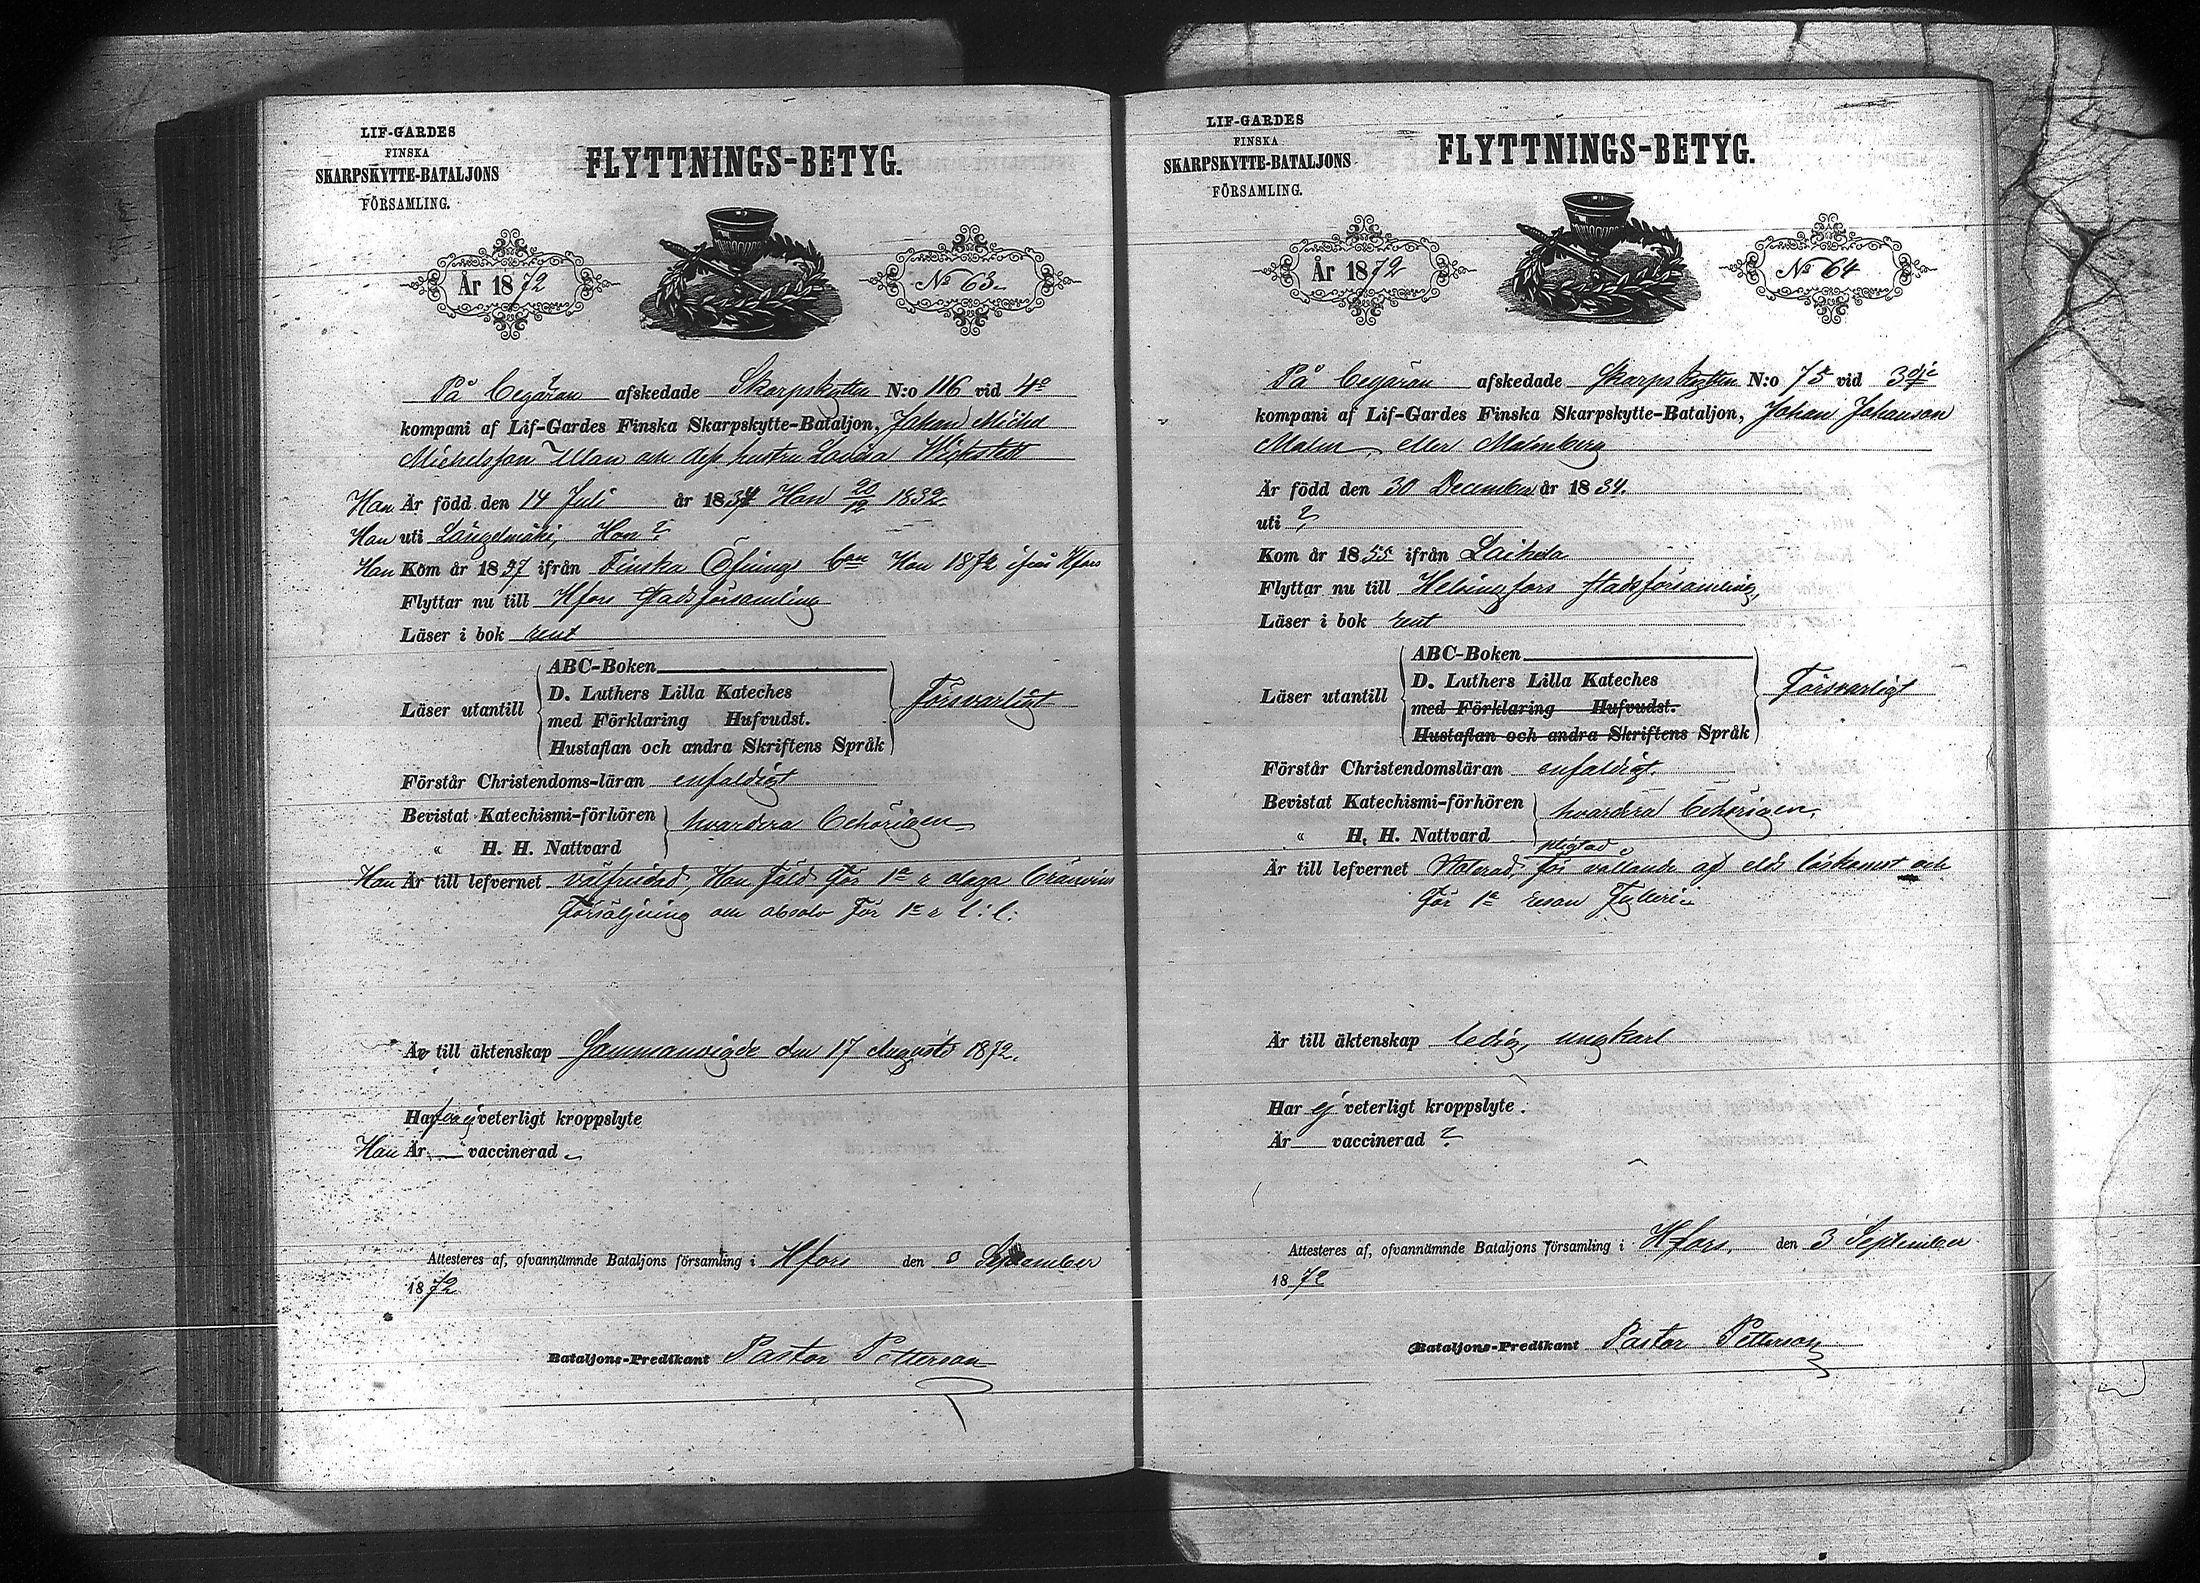 LIF-GARDES
FINSKA
SKARPSKYTTE-BATALJONS
FÖRSAMLING.
FLYTTNINGS-BETYG.
År 1872
No 63
På begäran afskedade Skarpskytten N:o 116 vid 4e
kompani af Lif-Gardes Finska Skarpskytte-Bataljon, Johan Michel
Michelsson Ulan och dess hustru Lovisa Wickstedt
Han Är född den 14 Juli år 1834 Hon 20/12 1832
Han uti Längelmäki, Hon ?
Han Kom år 1857 ifrån Finska Öfnings Bon Hon 1872 ifrån Hfors
Flyttar nu till Hfors Stadsförsamling
Läser i bok rent
Läser utantill
ABC-Boken
D. Luthers Lilla Kateches
med Förklaring Hufvudst.
Hustaflan och andra Skriftens Språk
Försvarligt
Förstår Christendoms-läran enfaldigt
Bevistat Katechismi-förhören
« H. H. Nattvard
hvardera behörigen
Han Är till lefvernet välfrejdad, Han fäld för 1a r olaga bränvins
försäljning och absolv för 1a r l: l:
Är till äktenskap Sammanvigde den 17 Augusti 1872.
Har ej veterligt kroppslyte
Han Är vaccinerad
Attesteras af, ofvannämnde Bataljons församling i Hfors den September
1872
Bataljons-Predikant Pastor Petterson
LIF-GARDES
FINSKA
SKARPSKYTTE-BATALJONS
FÖRSAMLING.
FLYTTNINGS-BETYG.
År 1872
No 64
På begäran afskedade Skarpskytten N:o 75 vid 3dje
kompani af Lif-Gardes Finska Skarpskytte-Bataljon, Johan Johanson
Malm, eller Malmberg
Är född den 30 December år 1834.
uti ?
Kom år 1855 ifrån Laihela
Flyttar nu till Helsingfors stadsförsamling,
Läser i bok rent
Läser utantill
ABC-Boken
D. Luthers Lilla Kateches
med Förklaring Hufvudst.
Hustaflan och andra Skriftens Språk
Försvarligt
Förstår Christendomsläran enfaldigt.
Bevistat Katechismi-förhören
« H. H. Nattvard
hvardera behörigen,
pligtad
Är till lefvernet Noterad, för vållande af elds löskomst och
för 1a resan fylleri
Är till äktenskap ledig, ungkarl
Har ej veterligt kroppslyte.
Är vaccinerad ?
Attesteres af, ofvannämnde Bataljons församling i Hfors, den 3 September
1872
Bataljons-Predikant Pastor Petterson